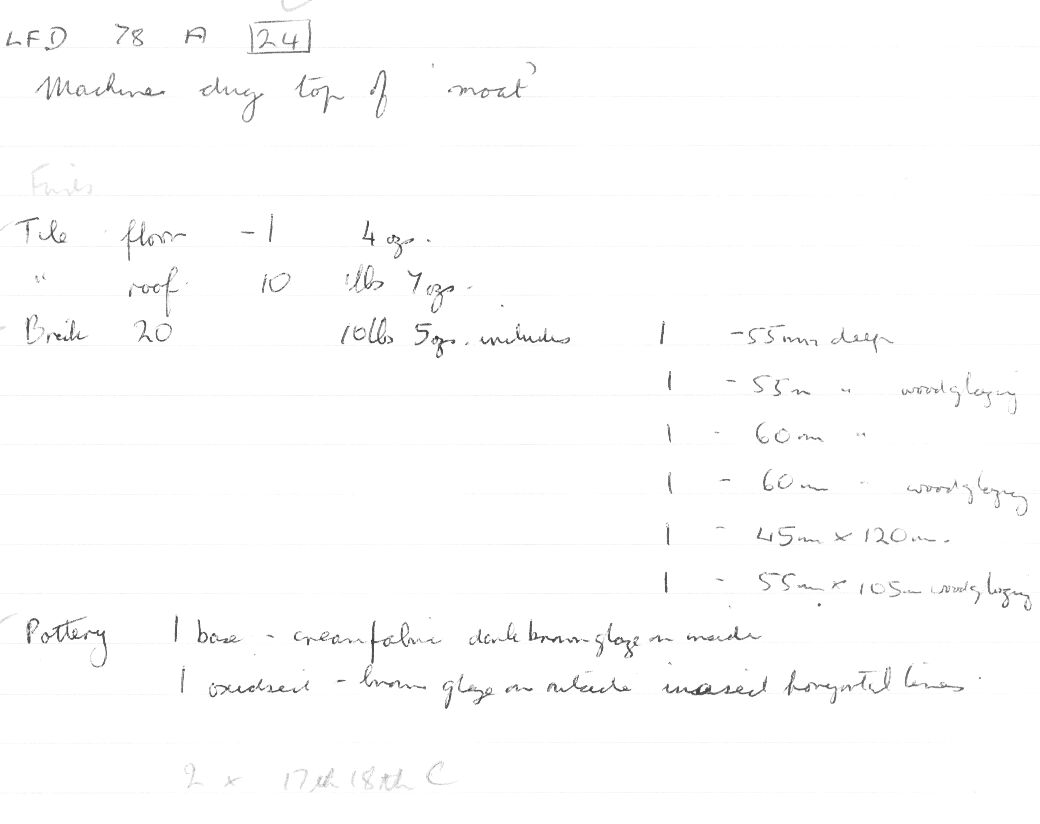 LFD 78 A 24
Machine dug top of 'moat'
Finds
Tile floor - 1 4 ozs.
" roof 10 1lbs 7ozs.
Brick 20 10lbs 5ozs. includes 1 - 55mm deep
1 - 55m " wood glazing
1 - 60mm "
1 - 60mm " wood glazing
1 - 45mm x 120m.
1 - 55mm x 105m wood glazing
Pottery 1 base - cream fabric dark brown glaze on inside
1 oxidised - brown glaze on outside incised horizontal lines
2 x 17th 18th C